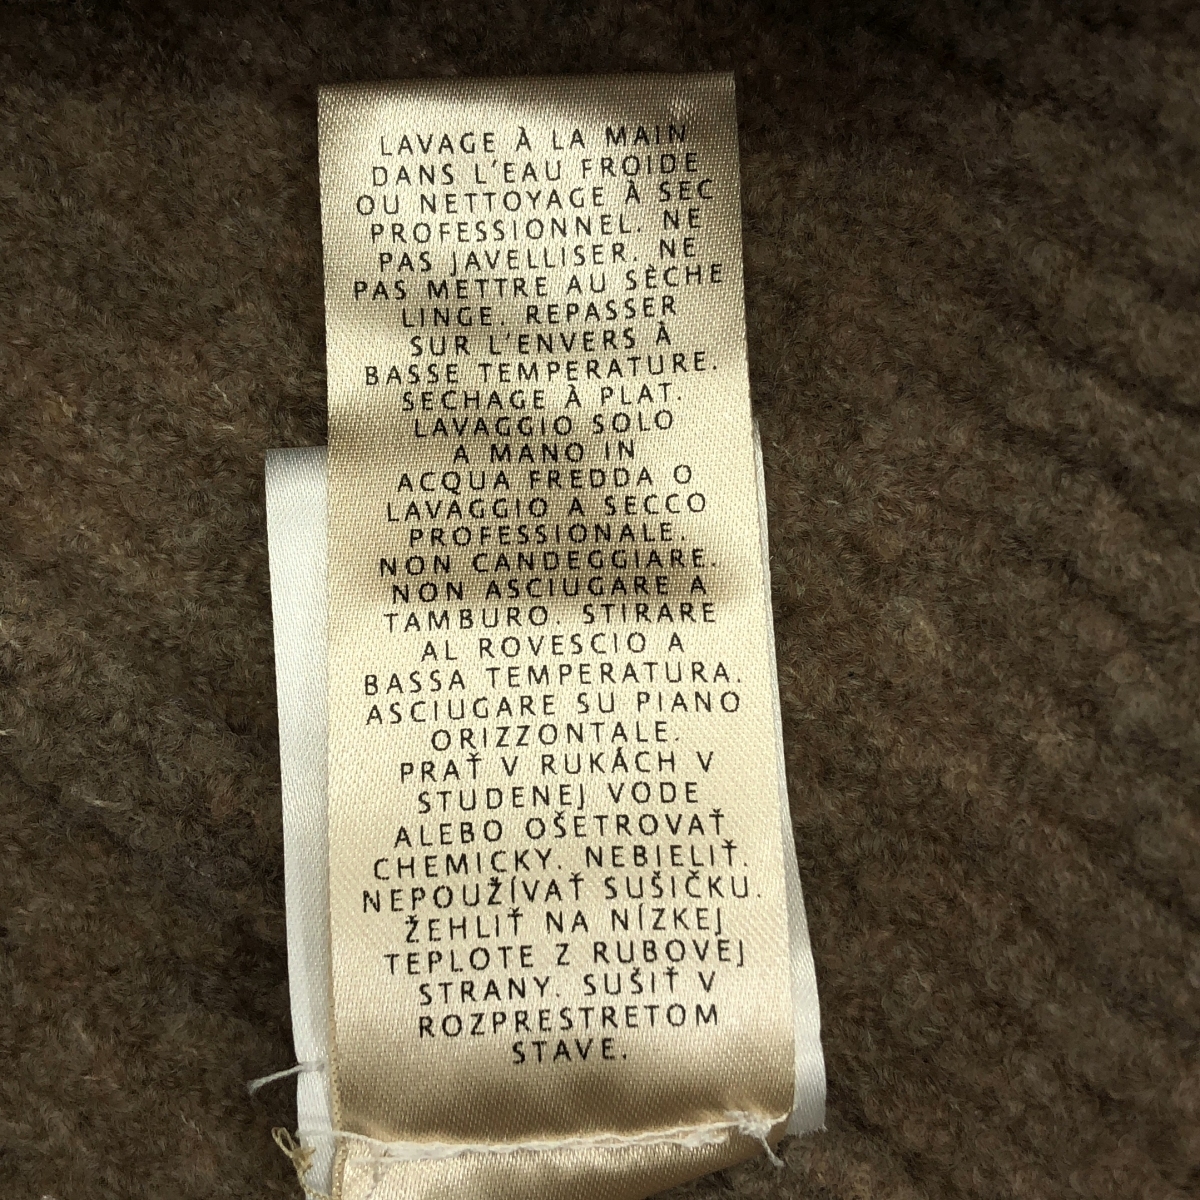 LAVAGE À LA MAIN
DANS L'EAU FROIDE
OU NETTOYAGE À SEC
PROFESSIONNEL. NE
PAS JAVELLISER. NE
PAS METTRE AU SÈCHE
LINGE. REPASSER
SUR L'ENVERS À
BASSE TEMPERATURE.
SECHAGE À PLAT.
LAVAGGIO SOLO
A MANO IN
ACQUA FREDDA O
LAVAGGIO A SECCO
PROFESSIONALE.
NON CANDEGGIARE.
NON ASCIUGARE A
TAMBURO. STIRARE
AL ROVESCIO A
BASSA TEMPERATURA.
ASCIUGARE SU PIANO
ORIZZONTALE.
PRAŤ V RUKÁCH V
STUDENEJ VODE
ALEBO OŠETROVAŤ
CHEMICKY. NEBIELIŤ.
NEPOUŽÍVAŤ SUŠIČKU.
ŽEHLIŤ NA NÍZKEJ
TEPLOTE Z RUBOVEJ
STRANY. SUŠIŤ V
ROZPRESTRETOM
STAVE.